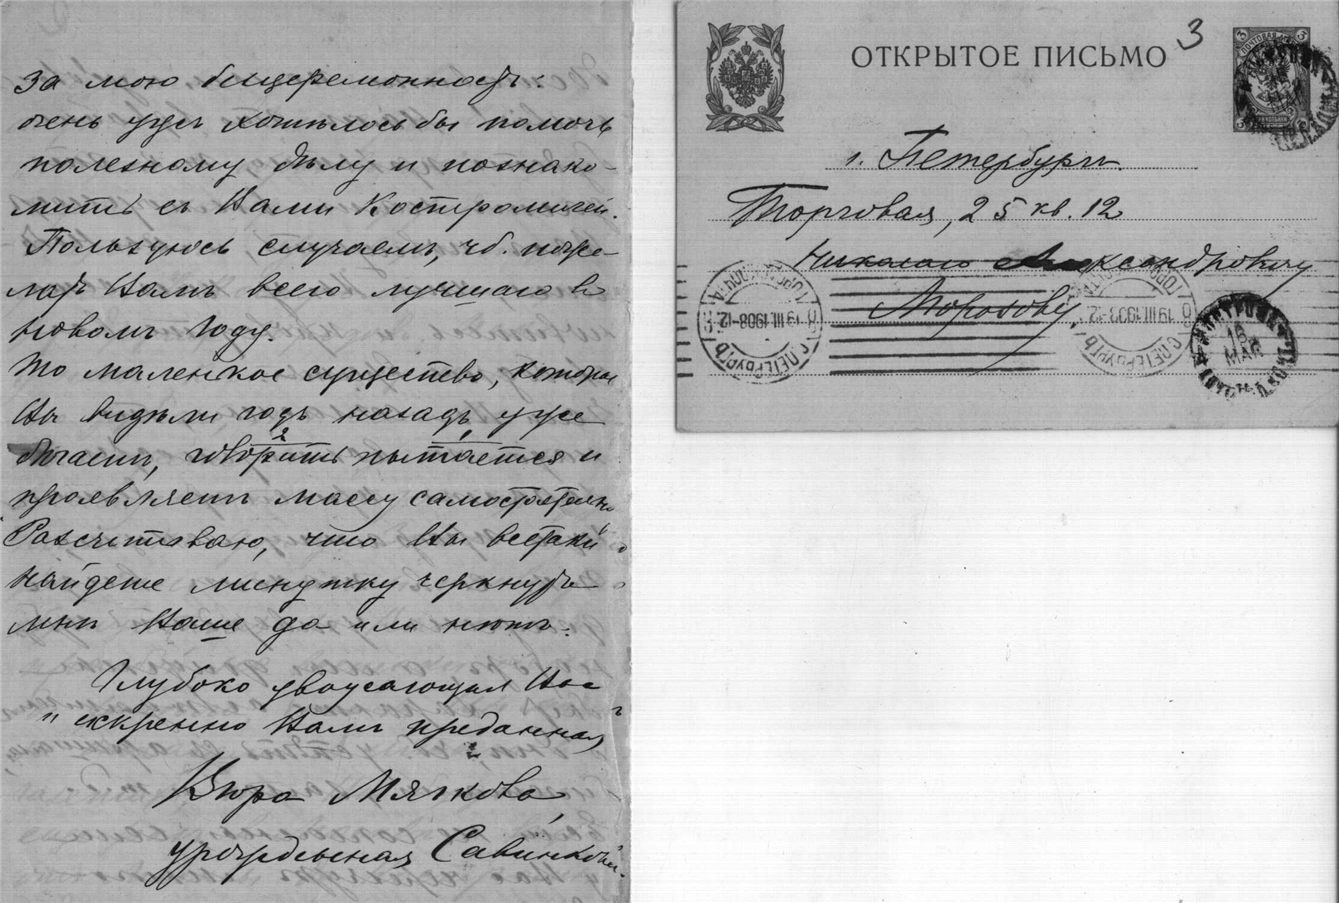 за мою бесцеремонность:
очень ужъ хотѣлось бы помочь
полезному дѣлу и познако-
мить съ Вами Костромичей.
Пользуюсь случаемъ, чб. поже-
лать Вамъ всего лучшаго въ
новомъ году.
То маленькое существо, которое
Вы видѣли годъ назадъ, уже
бѣгаетъ, говорить пытается и
проявляетъ массу самостоятельн
Разсчитываю, что Вы всетаки
найдете минутку черкнуть
мнѣ Ваше да или нѣтъ.
Глубоко уважающая Васъ
и искренно Вамъ преданная
Вѣра Мягкова,
урожденная Савинкова.
3
ОТКРЫТОЕ ПИСЬМО
г. Петербургъ
Торговая, 25 кв. 12
Николаю Александровичу
Морозову.
С.ПЕТЕРБУРГЪ
19 III.1908-12
ГОР. ПОЧТА
С.ПЕТЕРБУРГЪ
19 III.1908-12
16
МАР